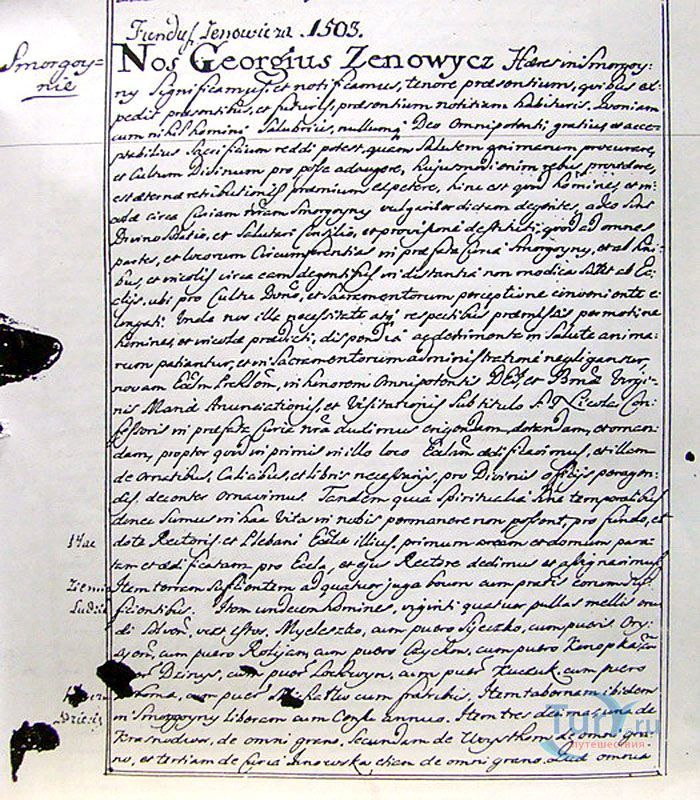 Fundus Zenowicza 1503.
Smorgoy=
nie
Nos Georgius Zenowycz Hæres in Smorgoy:
ny Significamus, et notificamus, tenore præsentium, quibus ex:
pedit præsentibus, et futuris, præsentium notitiam habituris. Quoniam
cum nihil homini Salubrius, nullumq Deo Omnipotenti gratius et acce=
ptabilius Sacrificium reddi potest, quam Salutem animarum procurare,
et Cultum Divinum pro posse adaugere, hujusmodi enim rebus providere,
est æternæ retributionis præmium expetere, hinc est quod homines, et in:
colæ circa Curiam nram Smorgoyny vulgariter dictam degentes, adeo Sint
Divino Solatio, et Salutari Consilio, et provisione destituti: quod ad omnes
partes, et locorum Circumferentias in præfata Curia Smorgoyny, et ab homi
bus, et incolis circa eam degentibus in distantia non modica Sitæ et Ec
clijs, ubi pro Cultu Divno, et Sacramentorum perceptione convenirent e
longati. Unde nos illa necessitate atq respectibus præmissis permoti ne
homines, et incolæ prædicti, dispendia ac detrimenta in Salute anima:
rum patiantur, et in Sacramentorum administratione negligantur,
novam Ecclm Prchlem, in honorem Omnipotentis DEI, et Bmæ Virgi:
nis Mariæ Anunciationis, et Visitationis Sub titulo S. Nicolai Con:
fessoris in præfata Curia nra duximus erigendam, dotandam, et ornan:
dam, propter quod in primis in illo loco Ecclam ædificavimus, et illam
de Ornatibus, Calicibus, et libris necessarijs, pro Divinis officijs peragen:
dis, decenter Ornavimus. Tandem quia Spiritualia Sine temporalibus
donec Sumus in hac Vita in nobis permanere non possent, pro fundo, et
dote Rectoris, et Plebani Ecclæ illius, primum aream et domum para:
tam et ædificatam pro Eccla, et ejus Rectore dedimus et assignavimus
Item terram Sufficientem ad quatuor juga boum cum pratis eorum Suf
ficientibus. Item undecim homines, viginti quatuor pullas mellis
di Solven, vest istos, Myeleszko, cum puero Syeczko, cum pueris Ory
cum puero cum puero cum puero
Dzinys, cum puer cum puer Kuczuk, cum puero
Choma, cum puer cum fratribus, Item tabernam ibidem
in Smorgoyny liberam cum Censu annuo. Item tres decimas unam de
Krasnodwor, de omni grano, Secundam de de omni gra
no, et tertiam de Curia Zenowska etiam de omni grano. Quod omnia
Ziemia
Ludzie
Turj.ru
путешествия